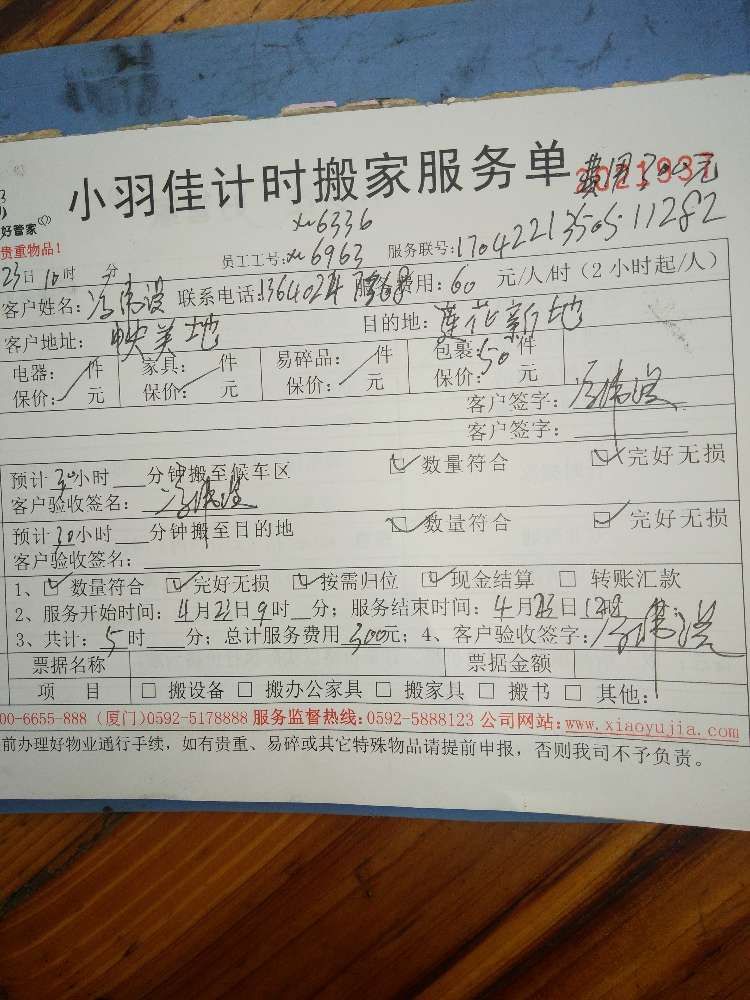 小羽佳计时搬家服务单 费用300元
2021937
好管家
xm6336
贵重物品！
员工工号：xm6963 服务联号：1704221350511282
23日10时 分
客户姓名： 联系电话： 服务费用：60 元/人/时（2小时起/人）
客户地址：映美地 目的地：莲花新地
电器： 件 家具： 件 易碎品： 件 包裹：50件
保价： 元 保价： 元 保价： 元 保价： 元
客户签字：
客户签字：
预计30小时 分钟搬至候车区 ☑数量符合 ☑完好无损
客户验收签名：
预计30小时 分钟搬至目的地 ☑数量符合 ☑完好无损
客户验收签名：
1、☑数量符合 ☑完好无损 ☑按需归位 ☑现金结算 □ 转账汇款
2、服务开始时间：4月23日9时 分；服务结束时间：4月23日12时
3、共计：5时 分；总计服务费用300元；4、客户验收签字：
票据名称 票据金额
项 目 □ 搬设备 □ 搬办公家具 □ 搬家具 □ 搬书 □ 其他：
00-6655-888 (厦门)0592-5178888 服务监督热线:0592-5888123 公司网站:www.xiaoyujia.com
前办理好物业通行手续，如有贵重、易碎或其它特殊物品请提前申报，否则我司不予负责。